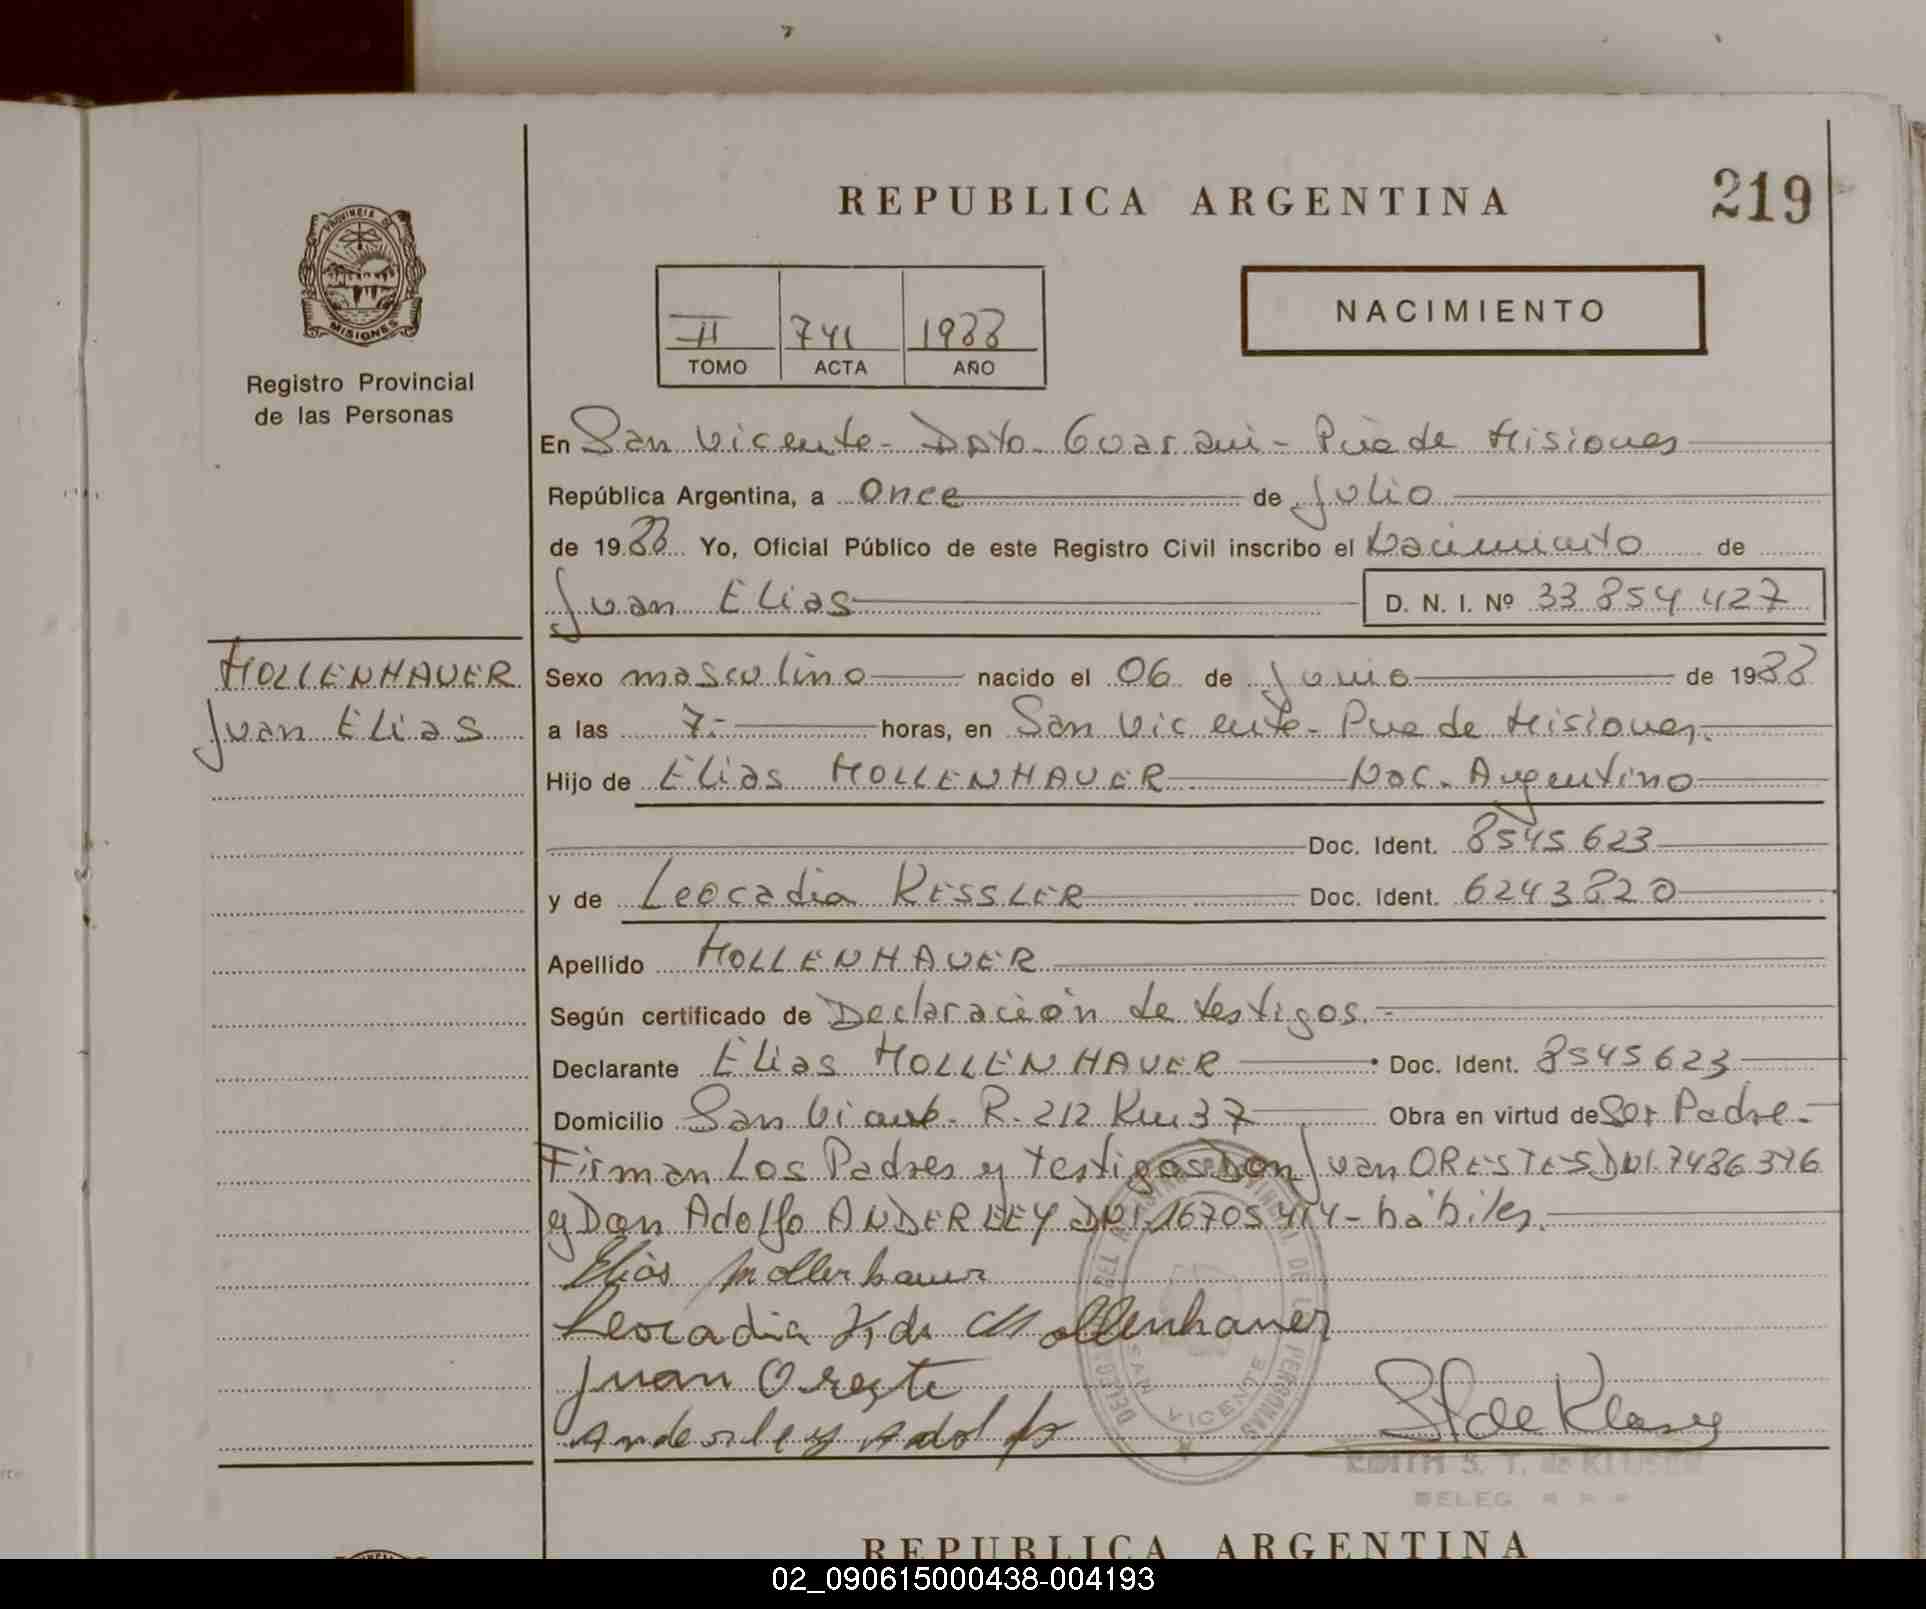 REPUBLICA ARGENTINA
219
PROVINCIA DE
MISIONES
Registro Provincial
de las Personas
II 741 1988
TOMO ACTA AÑO
NACIMIENTO
En San Vicente - Dpto. Guarani - Pcia de Misiones
República Argentina, a Once de Julio
de 1988 Yo, Oficial Público de este Registro Civil inscribo el Nacimiento de
Juan Elias D. N. I. Nº 33 854 427
MOLLENHAUER
Juan Elias
Sexo masculino nacido el 06 de Junio de 1988
a las 7.- horas, en San Vicente - Pcia de Misiones.
Hijo de Elias MOLLENHAUER Nac. Argentino
Doc. Ident. 8545623
y de Leocadia KESSLER Doc. Ident. 6243820
Apellido MOLLENHAUER
Según certificado de Declaración de testigos.-
Declarante Elias MOLLENHAUER Doc. Ident. 8545623
Domicilio San Vicente - R. 212 Km 37 Obra en virtud de Ser Padre.-
Firman Los Padres y testigos Don Juan ORESTES DNI. 7486376
y Don Adolfo ANDERLEY DNI. 16705414 - hábiles.
Elias Mollenhauer
Leocadia K. de Mollenhauer
Juan Oreste
Anderley Adolfo
SAN VICENTE
EDITH S. T. de KLUSEN
DELEG
REPUBLICA ARGENTINA
02_090615000438-004193